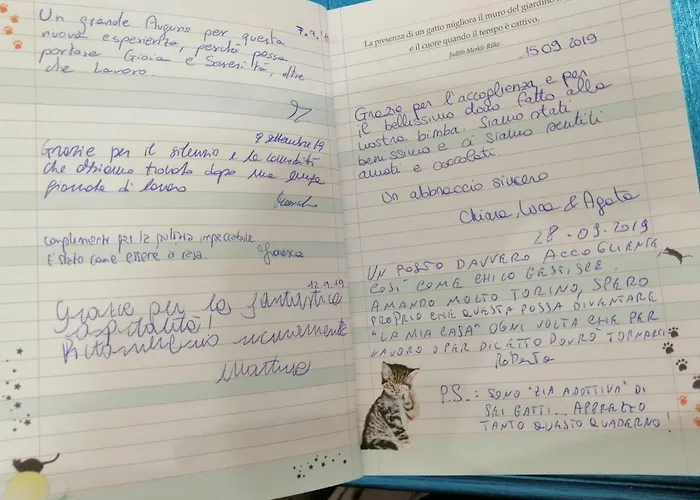 Un grande Augurio per questa
7.9.19
nuova esperienza, perché possa
portare Gioia e Serenità, oltre
che Lavoro.
9 settembre 19
Grazie per il silenzio e la comodità
che abbiamo trovato dopo una lunga
giornata di lavoro
Complimenti per la pulizia impeccabile.
È stato come essere a casa.
12.9.19
Grazie per la fantastica
ospitalità!
Ritorneremo sicuramente
Martina
La presenza di un gatto migliora il muro del giardino
e il cuore quando il tempo è cattivo.
Judith Merkle Riley
15 09 2019
Grazie per l'accoglienza e per
il bellissimo dono fatto alla
nostra bimba. Siamo stati
benissimo e ci siamo sentiti
amati e coccolati.
Un abbraccio sincero
Chiara, Luca & Agata
28-09-2019
UN POSTO DAVVERO ACCOGLIENTE
COSÌ COME CHI LO GESTISCE.
AMANDO MOLTO TORINO, SPERO
PROPRIO CHE QUESTA POSSA DIVENTARE
"LA MIA CASA" OGNI VOLTA CHE PER
LAVORO O PER DILETTO DOVRÒ TORNARCI
Roberta
P.S.: SONO "ZIA ADOTTIVA" DI
SEI GATTI... APPREZZO
TANTO QUESTO QUADERNO!